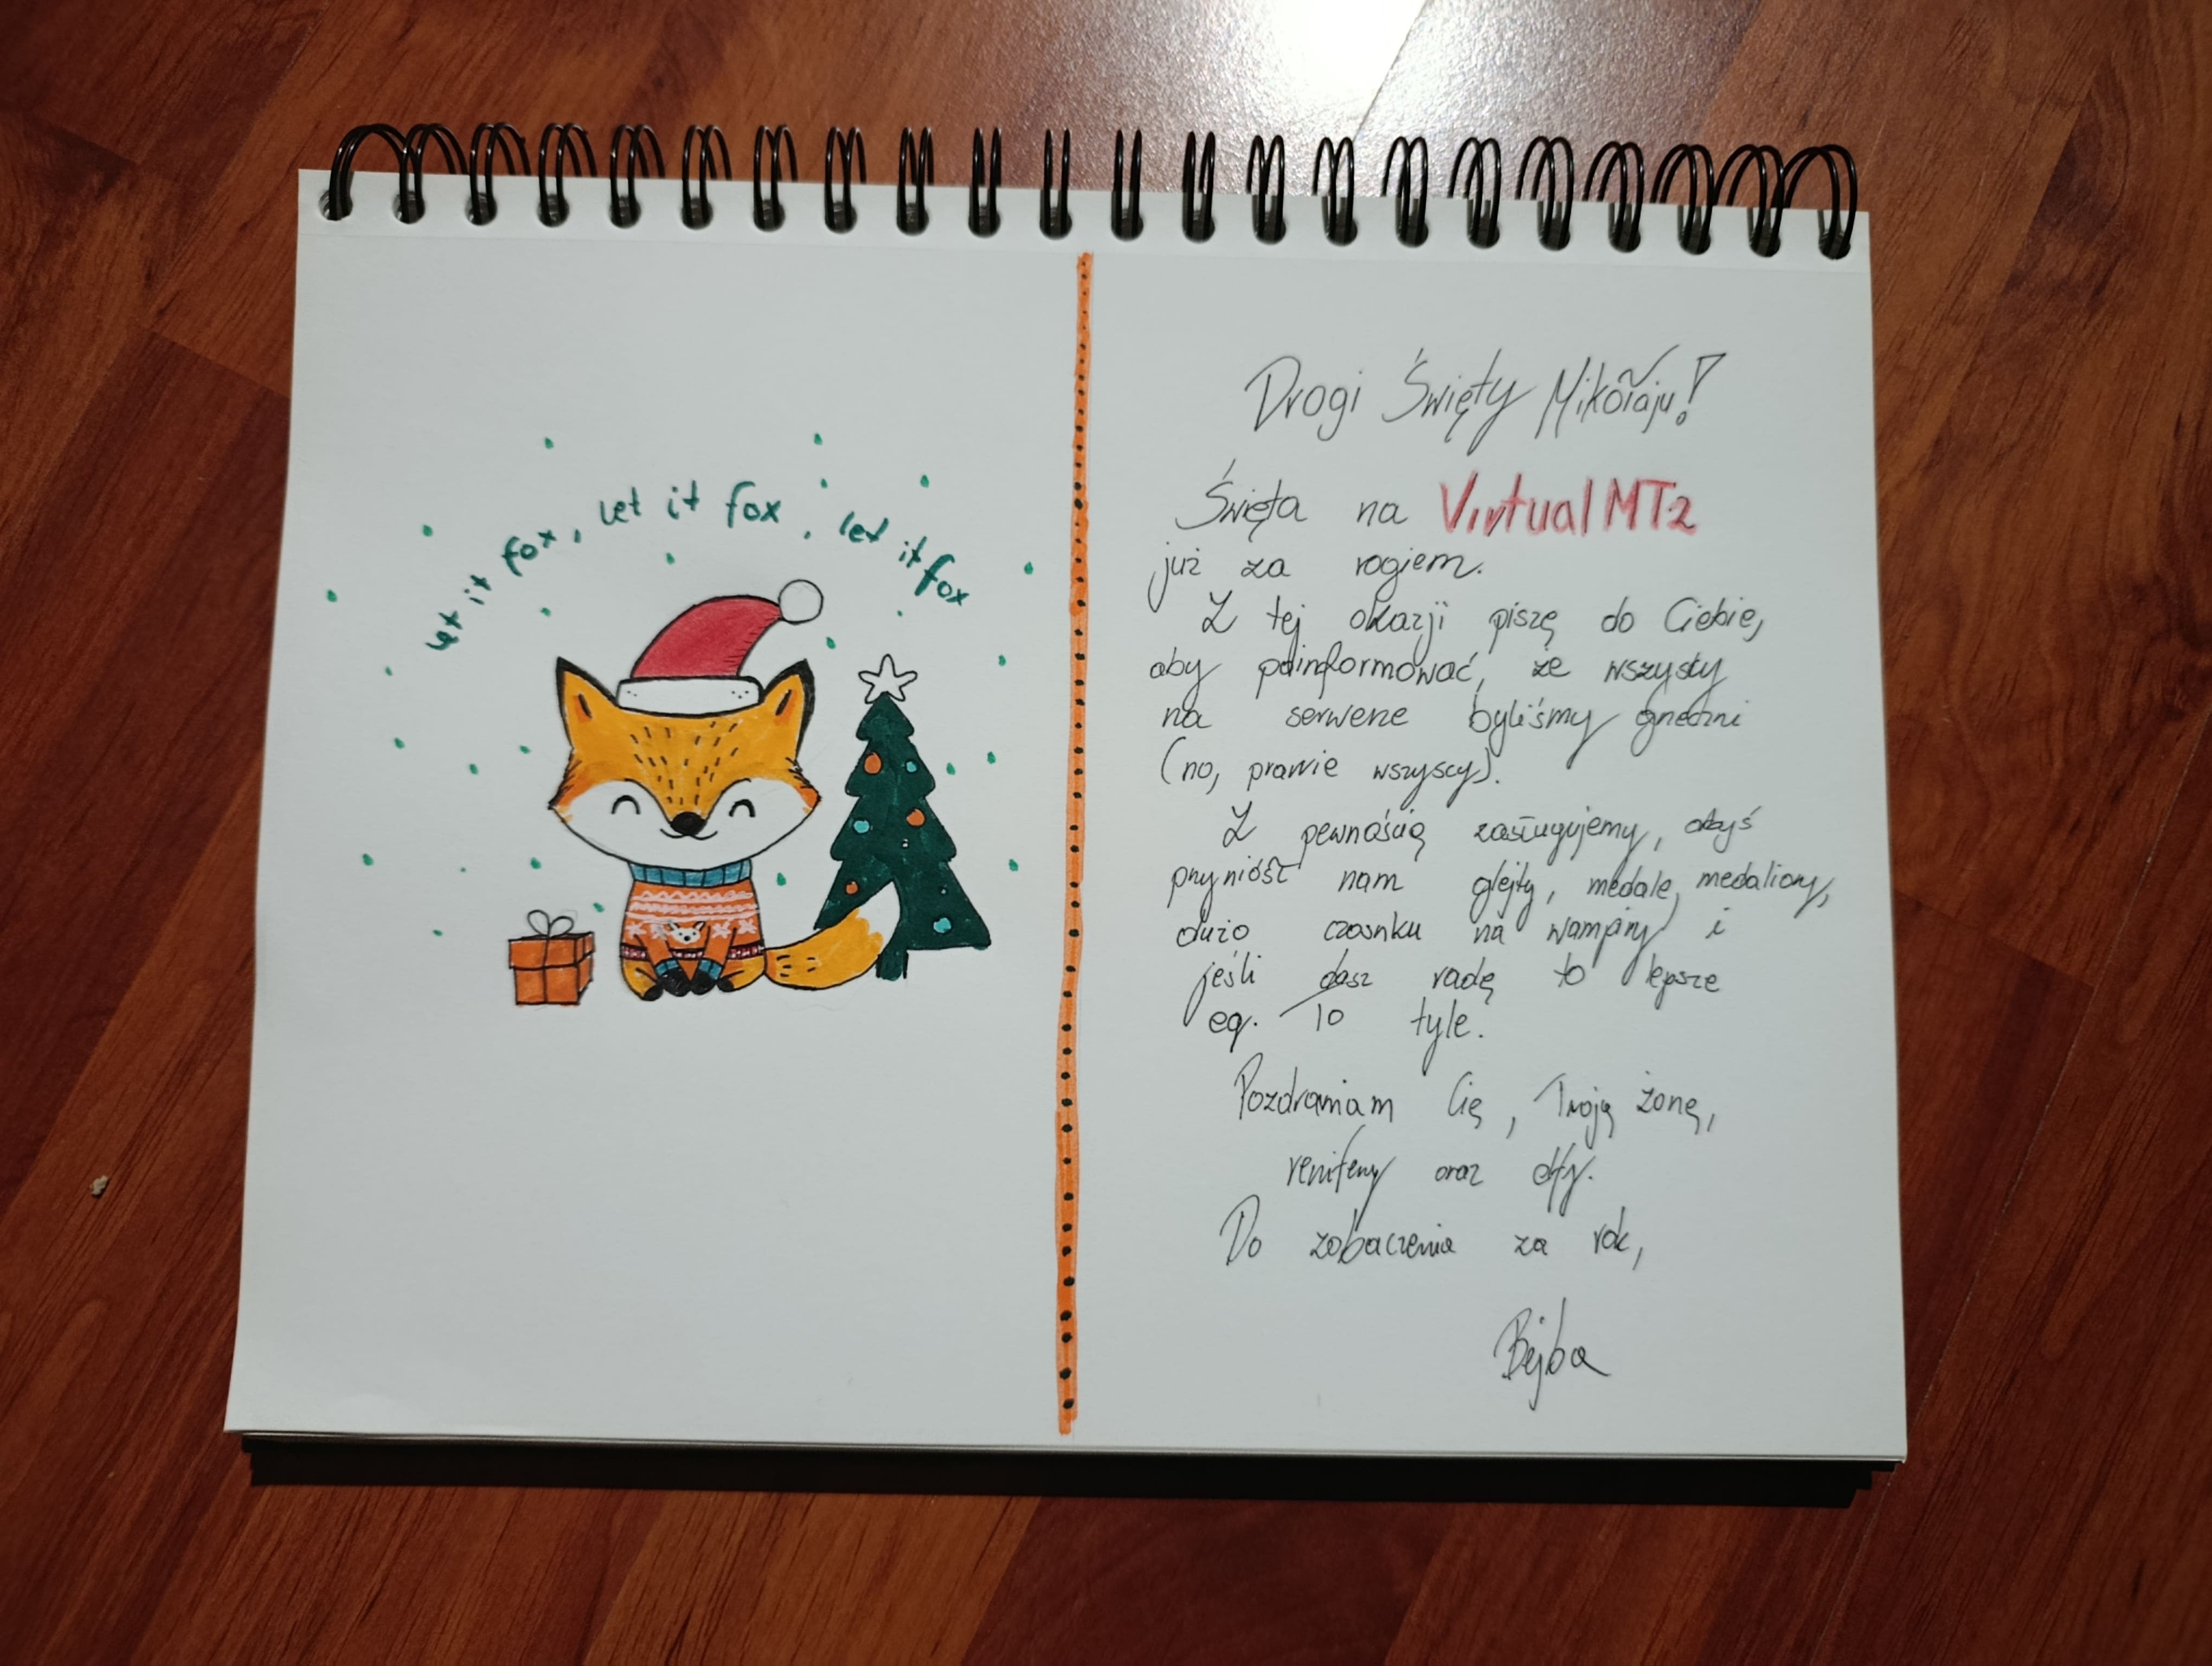 let it fox, let it fox, let it fox
Drogi Święty Mikołaju!
Święta na VirtualMT2
już za rogiem.
Z tej okazji piszę do Ciebie,
aby poinformować, że wszysty
na serwerze byliśmy grzeczni
(no, prawie wszyscy).
Z pewnością zasługujemy, abyś
przyniósł nam glejty, medale, medaliony,
dużo czosnku na wampiry i
jeśli dasz radę to lepsze
eq. To tyle.
Pozdrawiam Cię, Twoją żonę,
renifery oraz elfy.
Do zobaczenia za rok,
Bejba